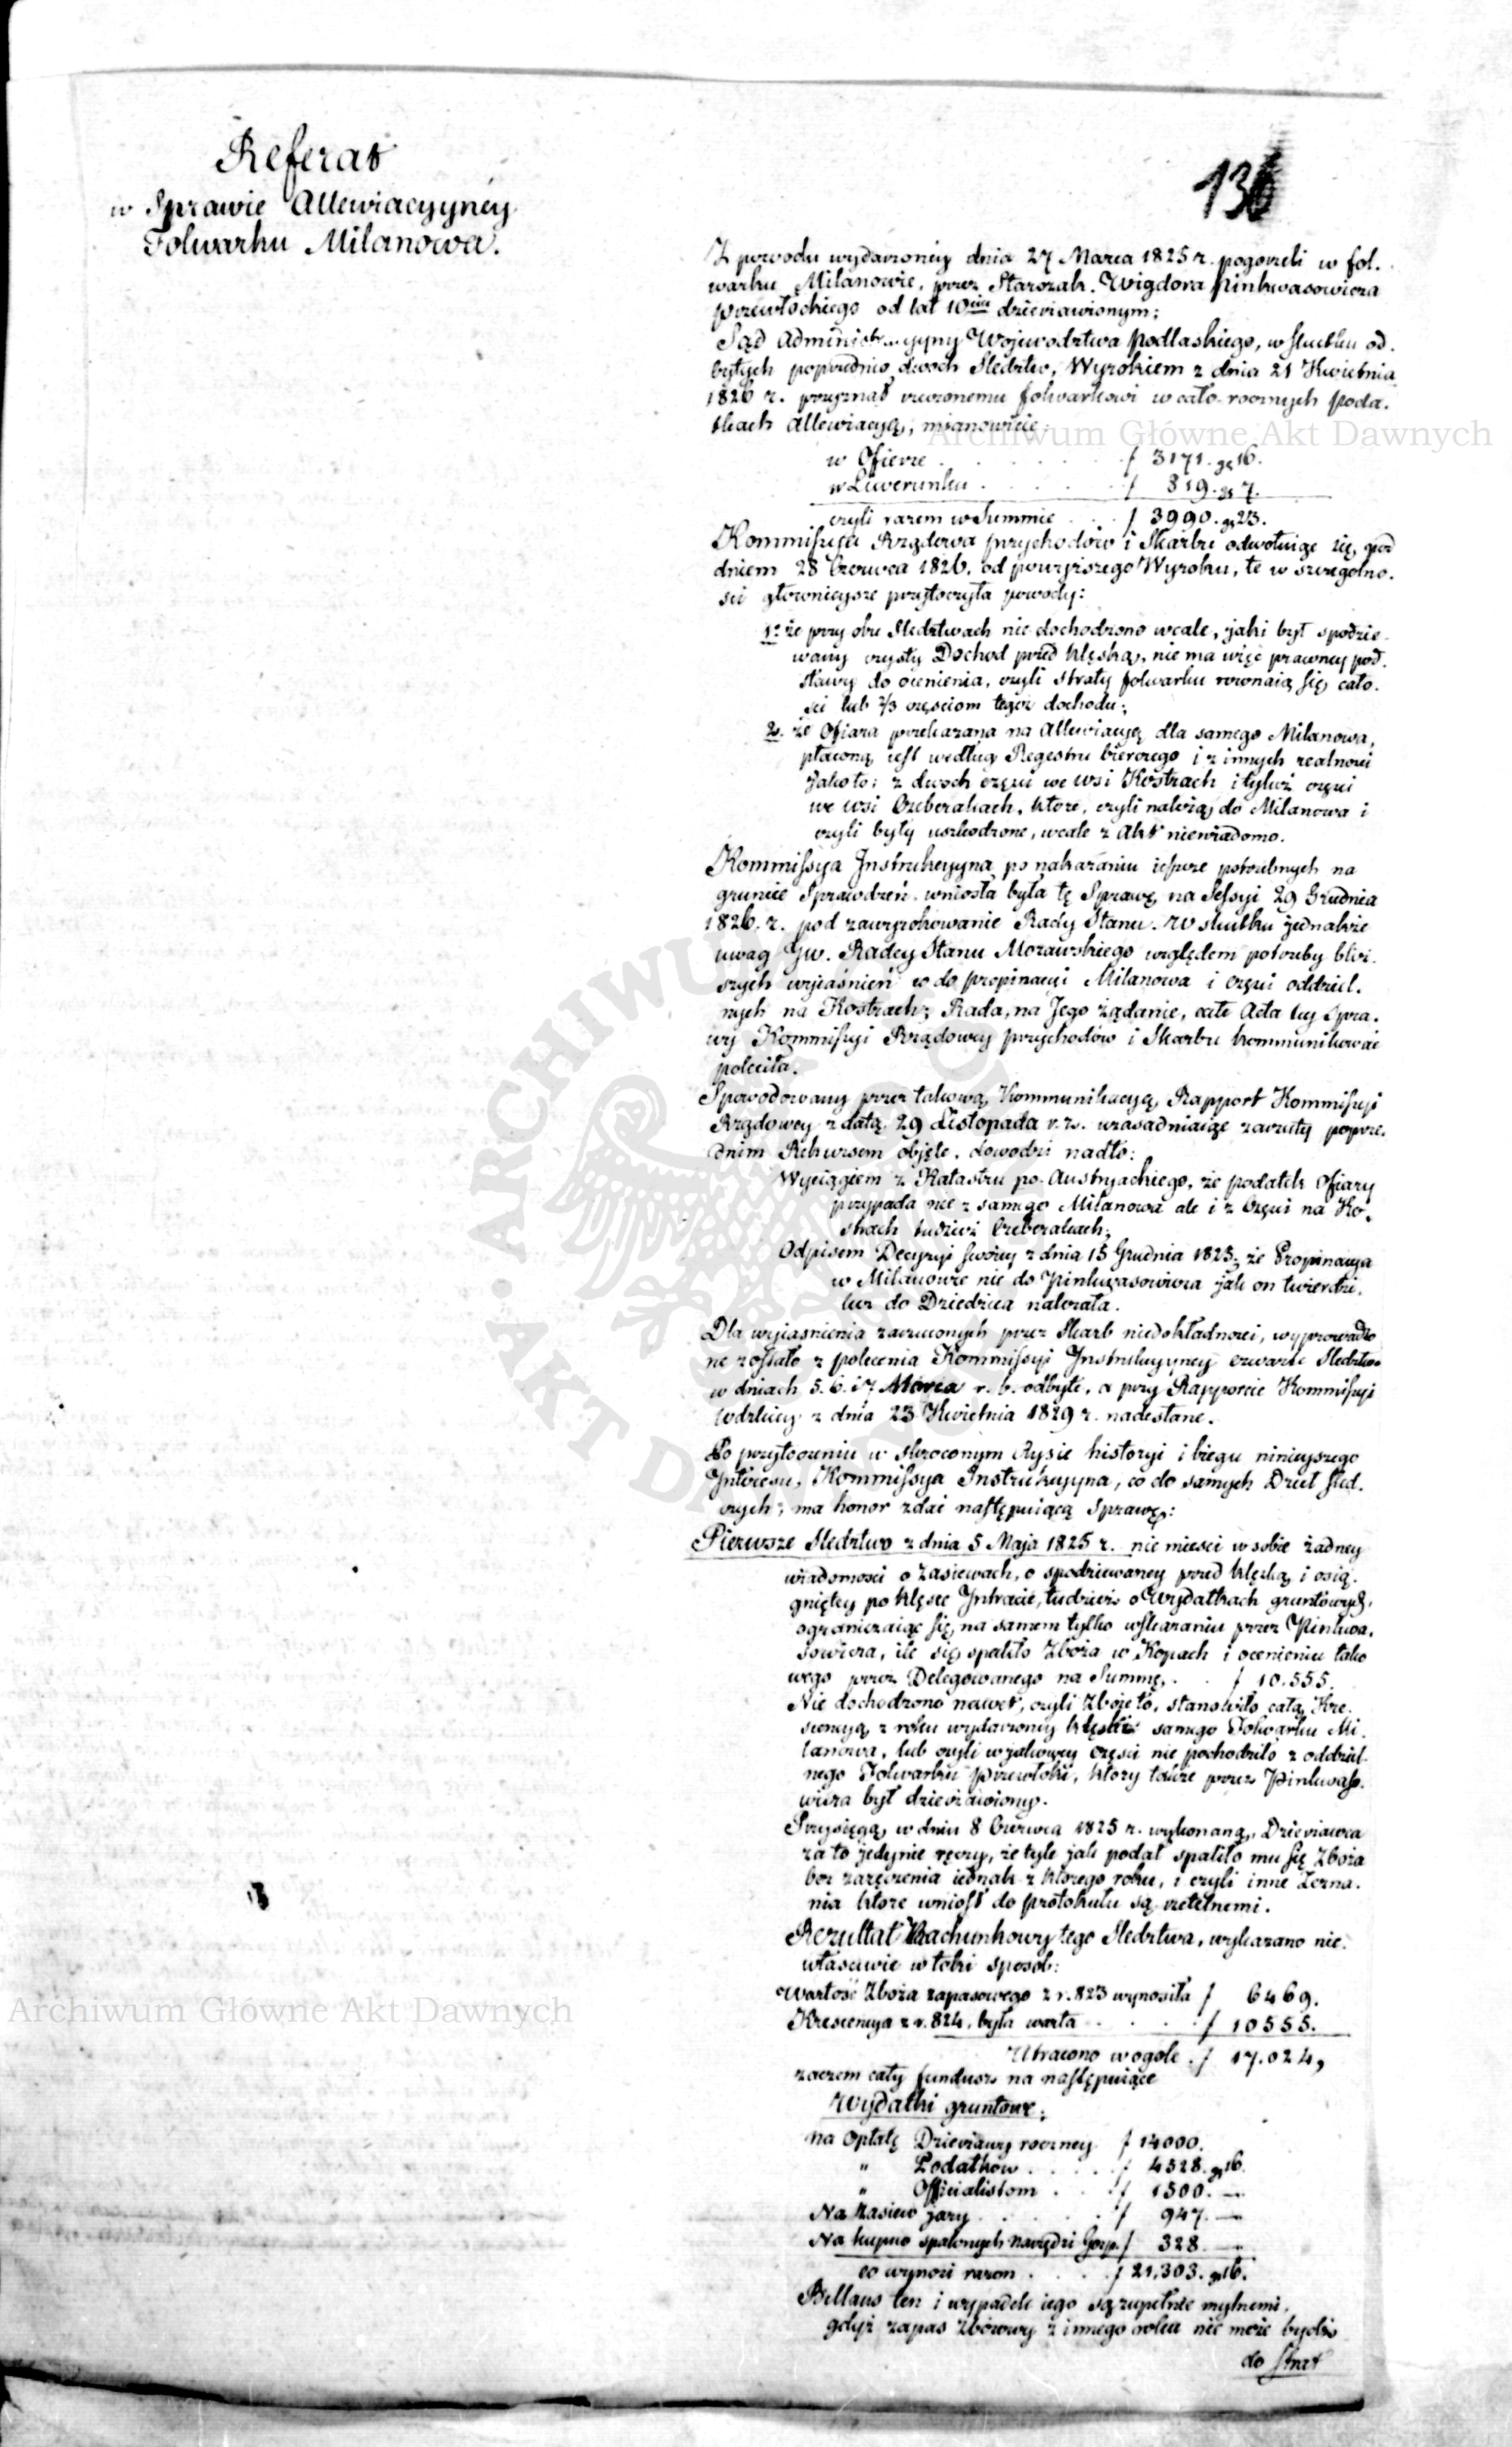 Referat
w Sprawie Allewiacyyney
Folwarku Milanowa.
136
Z powodu wydarzoney dnia 27 Marca 1825 r. pogorzeli w fol.
warku Milanowie, przez Starozak. Wigdora Pinkwasowicza
Przewłockiego od lat 10ciu dzierżawionym;
Sąd Administracyyny Województwa Podlaskiego, w skutku od.
bytych poprzednio dwoch Śledztw, Wyrokiem z dnia 21 Kwietnia
1826 r. przyznał rzeczonemu folwarkowi w cało-rocznych poda.
tkach Allewiacyą, mianowicie:
w Ofierze . . . f 3171. gr 16.
w Liwerunku . . . f 819. gr 7.
czyli razem w Summie . . f 3990. gr 23.
Kommissyia Rządowa Przychodów i Skarbu odwołuiąc się, pod
dniem 28 Czerwca 1826. od powyższego Wyroku, te w szczegolno.
sci głownieysze przytoczyła powody:
1o że przy obu Śledztwach nie dochodzono wcale, jaki był spodzie.
wany czysty Dochod przed klęską, nie ma więc prawney pod.
stawy do ocenienia, czyli straty folwarku rownaią się cało.
sci lub 2/3 częsciom tegoż dochodu;
2o że Ofiara przekazana na Allewiacyą dla samego Milanowa,
płaconą iest według Regestru bierczego i z innych realnosci
jako to: z dwoch części we wsi Kostrach i tyluż części
we wsi Czeberakach, ktore, czyli należą do Milanowa i
czyli były uszkodzone, wcale z Akt niewiadomo.
Kommissya Instrukcyyna po nakazaniu ieszcze potrzebnych na
gruncie Sprawdzeń, wniosła była tę Sprawę na Sessyi 29 Grudnia
1826. r. pod zawyrokowanie Rady Stanu. W skutku jednakże
uwag Jw. Radcy Stanu Morawskiego względem potrzeby bliż.
szych wyiaśnień co do propinacyi Milanowa i części oddziel.
nych na Kostrach; Rada, na Jego żądanie, całe Acta tey Spra.
wy Kommissyi Rządowey Przychodów i Skarbu kommunikować
poleciła.
Spowodowany przez takową Kommunikacyą, Rapport Kommissyi
Rządowey z datą 29 Listopada r. z. uzasadniaiąc zarzuty poprze.
dnim Rekursem objęte, dowodzi nadto:
Wyciągiem z Katastru po-Austryackiego, że podatek Ofiary
przypada nie z samego Milanowa ale i z Części na Ko.
strach tudzież Czeberakach;
Odpisem Decyzyi swoiey z dnia 15 Grudnia 1823; że Propinacya
w Milanowie nie do Pinkwasowicza jak on twierdzi,
lecz do Dziedzica należała.
Dla wyiasnienia zarzuconych przez Skarb niedokładnosci, wyprowadzo
ne zostało z polecenia Kommissyi Instrukcyyney czwarte Śledztwo
w dniach 5. 6. i 7 Marca r. b. odbyte, a przy Rapporcie Kommissyi
Wdzkiey z dnia 23 Kwietnia 1829 r. nadesłane.
Po przytoczeniu w skroconym Rysie historyi i biegu ninieyszego
Interesu, Kommissya Instrukcyyna, co do samych Dzieł śled.
czych, ma honor zdać następuiącą sprawę:
Pierwsze Śledztwo z dnia 5 Maja 1825 r. nie miesci w sobie żadney
wiadomosci o zasiewach, o spodziewaney przed klęską i osią.
gniętey po klęsce Intracie, tudzież o wydatkach gruntowych,
ograniczaiąc się na samem tylko wskazaniu przez Pinkwa.
sowicza, ile się spaliło zboża w Kopach i ocenieniu tako
wego przez Delegowanego na Summę . . f 10.555.
Nie dochodzono nawet, czyli zboże to, stanowiło całą Kre.
scencyą z roku wydarzoney klęski samego Folwarku Mi.
lanowa, lub czyli w jakowey części nie pochodziło z oddziel.
nego Folwarku Przewłoki, ktory także przez Pinkwaso.
wicza był dzierżawiony.
Przysięgą w dniu 8 Czerwca 1825 r. wykonaną, Dzierżawca
za to jedynie ręczy, że tyle jak podał spaliło mu się zboża
bez zaręczenia iednak z ktorego roku, i czyli inne Zezna.
nia ktore wniosł do protokułu są rzetelnemi.
Rezultat Rachunkowy tego Śledztwa, wykazano nie.
właściwie w taki sposób:
Wartość Zboża zapasowego z r. 823 wynosiła f 6469.
Krescencya z r. 824. była warta . . . f 10555.
Utracono wogóle . f 17.024,
zaczem cały fundusz na następuiące
Wydatki gruntowe:
na Opłatę Dzierżawy roczney f 14000.
" Podatkow . . . . . f 4528. gr 16.
" Officialistom . . . f 1500. —
Na Zasiew jary . . . . . f 947. —
Na kupno spalonych narzędzi Gosp. f 328. —
co wynosi razem . . . . f 21,303. gr 16.
Billans ten i wypadek iego są zupełnie mylnemi,
gdyż zapas zbożowy z innego roku nie może bydź
do strat
Archiwum Główne Akt Dawnych
Archiwum Główne Akt Dawnych
ARCHIWUM GŁÓWNE AKT DAWNYCH